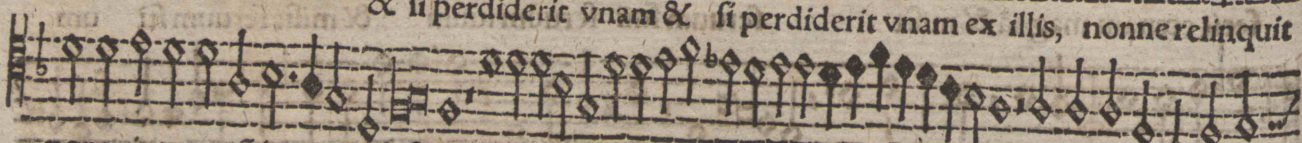 & ſi perdiderit vnam & ſi perdiderit vnam ex illis, nonne relinquit